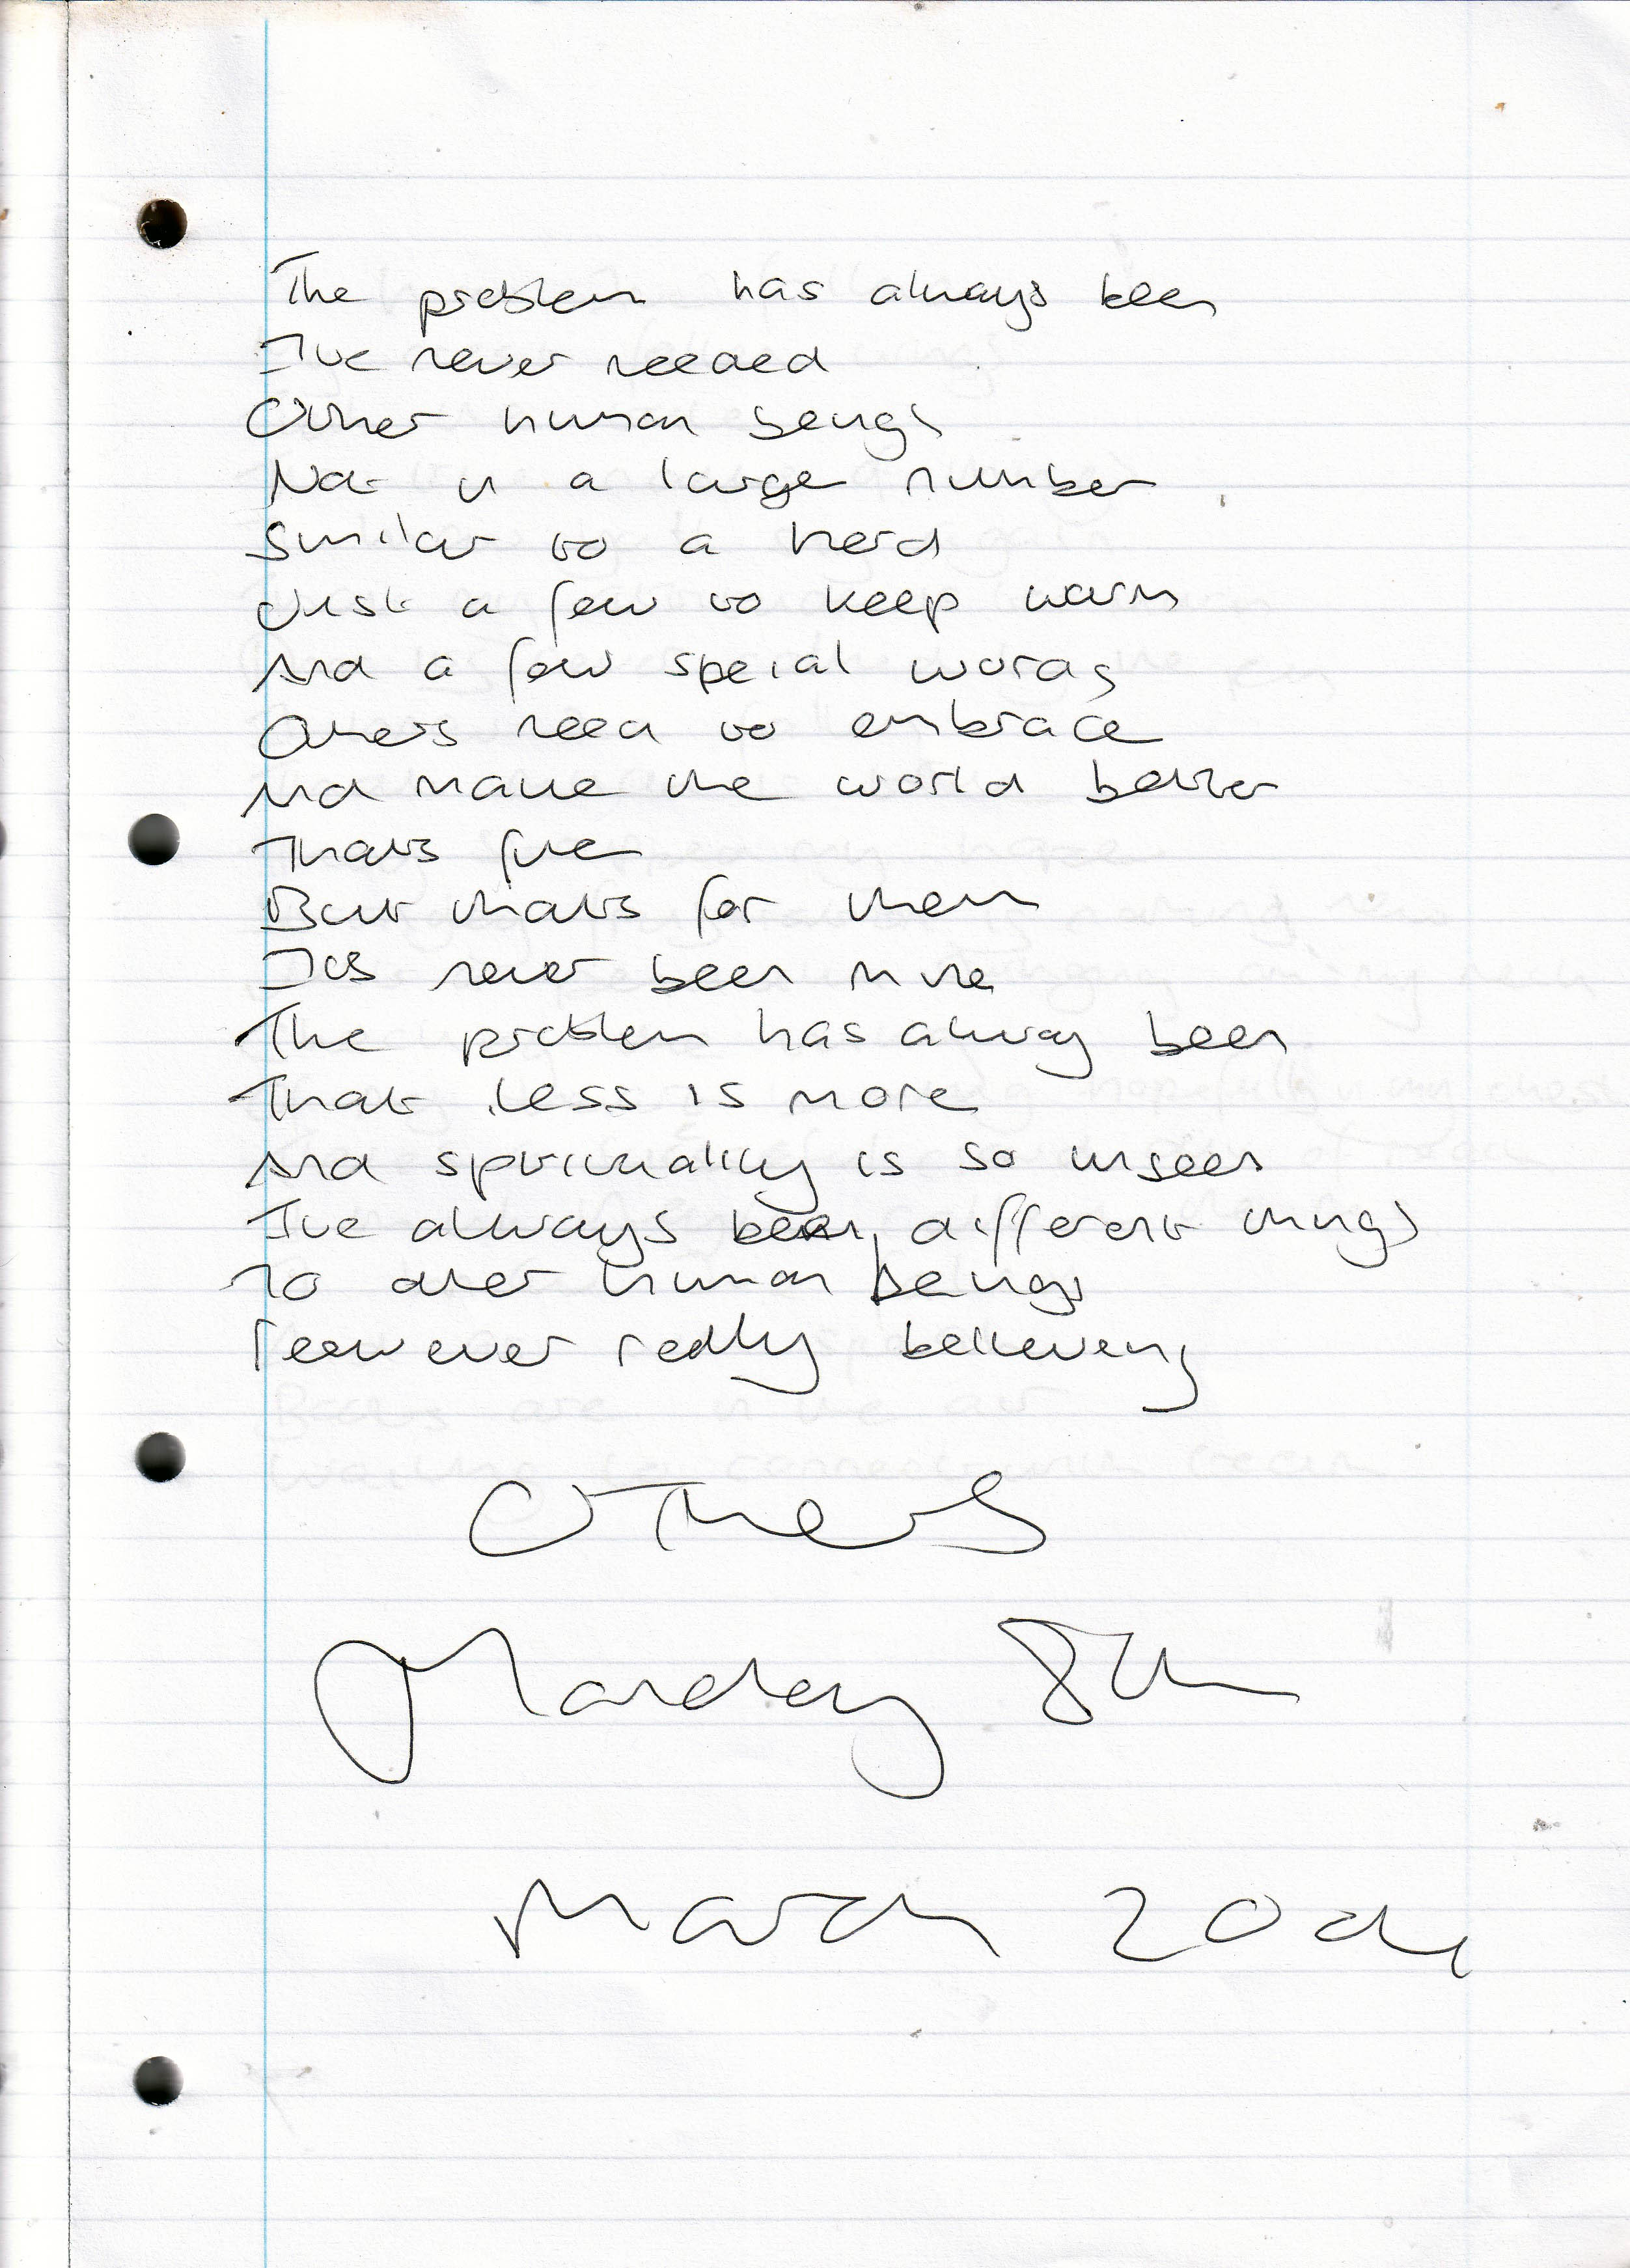 The problem has always been
I've never needed
Other human beings
Not in a large number
Similar to a herd
Just a few to keep warm
And a few speial words
Others need to embrace
And make the world better
Thats fine
But thats for them
Its never been mine
The problem has alway been
That less is more
And spirituality is so unseen
I've always been different things
To other human beings
ever really believeing
Others
Monday 8th
March 20